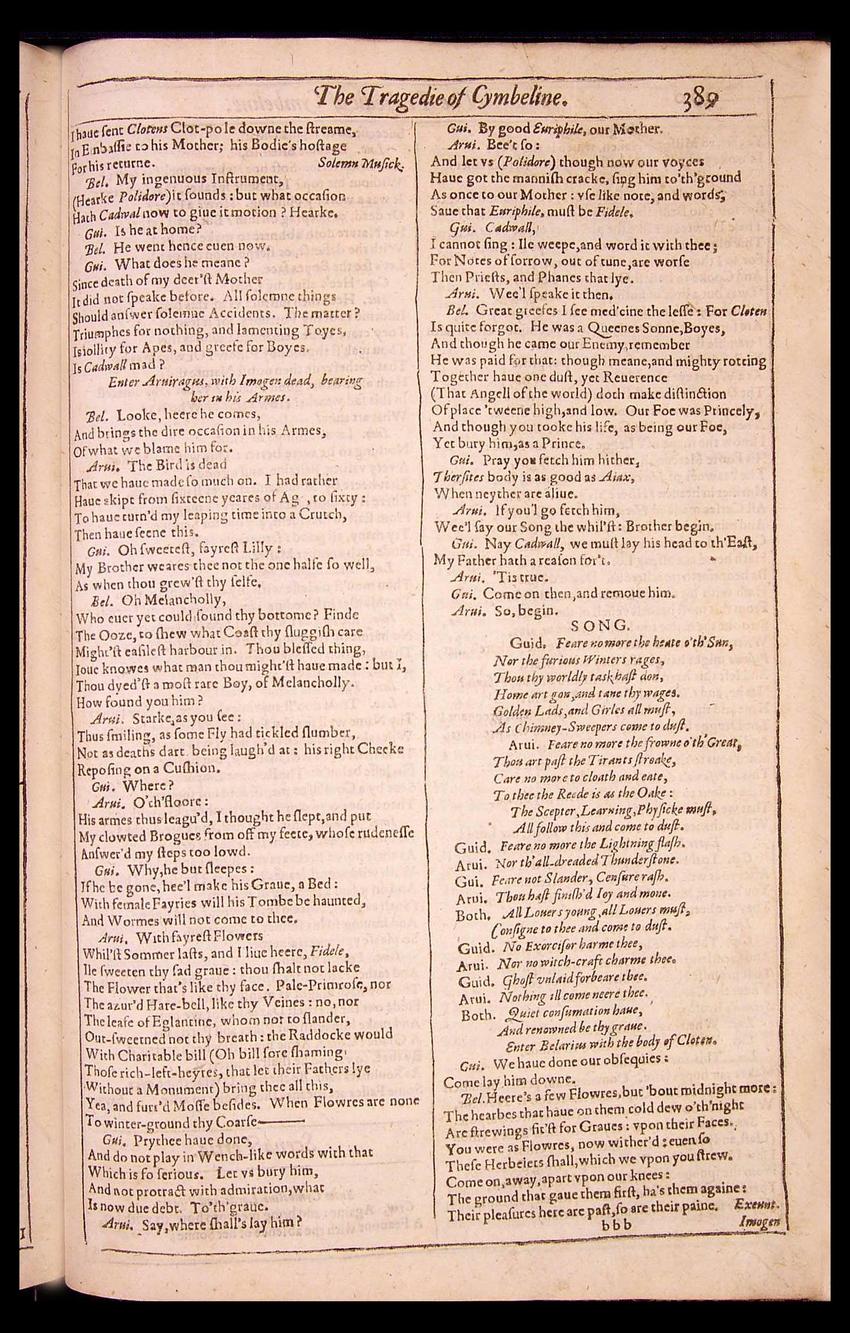 The Tragedie of Cymbeline. 389
I haue sent Clotens Clot-pole downe the streame,
In Embassie to his Mother; his Bodie's hostage
For his returne. Solemn Musick.
Bel. My ingenuous Instrument,
(Hearke Polidore) it sounds : but what occasion
Hath Cadwal now to giue it motion ? Hearke.
Gui. Is he at home?
Bel. He went hence euen now.
Gui. What does he meane ?
Since death of my deer'st Mother
It did not speake before. All solemne things
Should answer solemne Accidents. The matter ?
Triumphes for nothing, and lamenting Toyes,
Is iollity for Apes, and greefe for Boyes.
Is Cadwall mad ?
Enter Aruiragus, with Imogen dead, bearing
her in his Armes.
Bel. Looke, heere he comes,
And brings the dire occasion in his Armes,
Of what we blame him for.
Arui. The Bird is dead
That we haue made so much on. I had rather
Haue skipt from sixteene yeares of Ag , to sixty :
To haue turn'd my leaping time into a Crutch,
Then haue seene this.
Gui. Oh sweetest, fayrest Lilly :
My Brother weares thee not the one halfe so well,
As when thou grew'st thy selfe.
Bel. Oh Melancholly,
Who euer yet could sound thy bottome? Finde
The Ooze, to shew what Coast thy sluggish care
Might'st easilest harbour in. Thou blessed thing,
Ioue knowes what man thou might'st haue made : but I,
Thou dyed'st a most rare Boy, of Melancholly.
How found you him ?
Arui. Starke, as you see :
Thus smiling, as some Fly had tickled slumber,
Not as deaths dart being laugh'd at : his right Cheeke
Reposing on a Cushion.
Gui. Where ?
Arui. O'th'floore :
His armes thus leagu'd, I thought he slept, and put
My clowted Brogues from off my feete, whose rudenesse
Answer'd my steps too lowd.
Gui. Why, he but sleepes :
If he be gone, hee'l make his Graue, a Bed :
With female Fayries will his Tombe be haunted,
And Wormes will not come to thee.
Arui. With fayrest Flowers
Whil'st Sommer lasts, and I liue heere, Fidele,
Ile sweeten thy sad graue : thou shalt not lacke
The Flower that's like thy face. Pale-Primrose, nor
The azur'd Hare-bell, like thy Veines : no, nor
The leafe of Eglantine, whom not to slander,
Out-sweetned not thy breath : the Raddocke would
With Charitable bill (Oh bill sore shaming
Those rich-left-heyres, that let their Fathers lye
Without a Monument) bring thee all this,
Yea, and furr'd Mosse besides. When Flowres are none
To winter-ground thy Coarse——
Gui. Prythee haue done,
And do not play in Wench-like words with that
Which is so serious. Let vs bury him,
And not protract with admiration, what
Is now due debt. To'th'graue.
Arui. Say, where shall's lay him ?
Gui. By good Euriphile, our Mother.
Arui. Bee't so :
And let vs (Polidore) though now our voyces
Haue got the mannish cracke, sing him to'th'ground
As once to our Mother : vse like note, and words,
Saue that Euriphile, must be Fidele.
Gui. Cadwall,
I cannot sing : Ile weepe, and word it with thee ;
For Notes of sorrow, out of tune, are worse
Then Priests, and Phanes that lye.
Arui. Wee'l speake it then.
Bel. Great greefes I see med'cine the lesse : For Cloten
Is quite forgot. He was a Queenes Sonne, Boyes,
And though he came our Enemy, remember
He was paid for that : though meane, and mighty rotting
Together haue one dust, yet Reuerence
(That Angell of the world) doth make distinction
Of place 'tweene high, and low. Our Foe was Princely,
And though you tooke his life, as being our Foe,
Yet bury him, as a Prince.
Gui. Pray you fetch him hither,
Thersites body is as good as Aiax,
When neyther are aliue.
Arui. If you'l go fetch him,
Wee'l say our Song the whil'st : Brother begin.
Gui. Nay Cadwall, we must lay his head to th'East,
My Father hath a reason for't.
Arui. 'Tis true.
Gui. Come on then, and remoue him.
Arui. So, begin.
SONG.
Guid. Feare no more the heate o'th'Sun,
Nor the furious Winters rages,
Thou thy worldly task hast don,
Home art gon, and tane thy wages.
Golden Lads, and Girles all must,
As Chimney-Sweepers come to dust.
Arui. Feare no more the frowne o'th'Great,
Thou art past the Tirants stroake,
Care no more to cloath and eate,
To thee the Reede is as the Oake :
The Scepter, Learning, Physicke must,
All follow this and come to dust.
Guid. Feare no more the Lightning flash.
Arui. Nor th'all-dreaded Thunderstone.
Gui. Feare not Slander, Censure rash.
Arui. Thou hast finish'd Ioy and mone.
Both. All Louers young, all Louers must,
Consigne to thee and come to dust.
Guid. No Exorcisor harme thee,
Arui. Nor no witch-craft charme thee.
Guid. Ghost vnlaid forbeare thee.
Arui. Nothing ill come neere thee.
Both. Quiet consumation haue,
And renowned be thy graue.
Enter Belarius with the body of Cloten.
Gui. We haue done our obsequies :
Come lay him downe.
Bel. Heere's a few Flowres, but 'bout midnight more :
The hearbes that haue on them cold dew o'th'night
Are strewings fit'st for Graues : vpon their Faces.
You were as Flowres, now wither'd : euen so
These Herbelets shall, which we vpon you strew.
Come on, away, apart vpon our knees :
The ground that gaue them first, ha's them againe :
Their pleasures here are past, so are their paine. Exeunt.
bbb Imogen